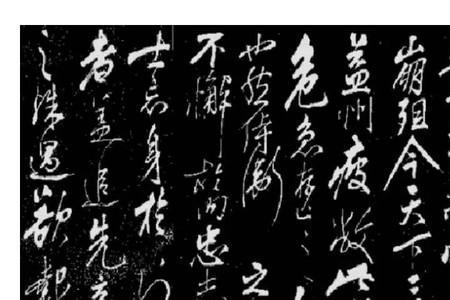 崩殂今天下三
益州疲敝此
危急存亡之
也然侍衛之
不懈於內忠志
士忘身於外
者蓋追先帝
之殊遇欲報